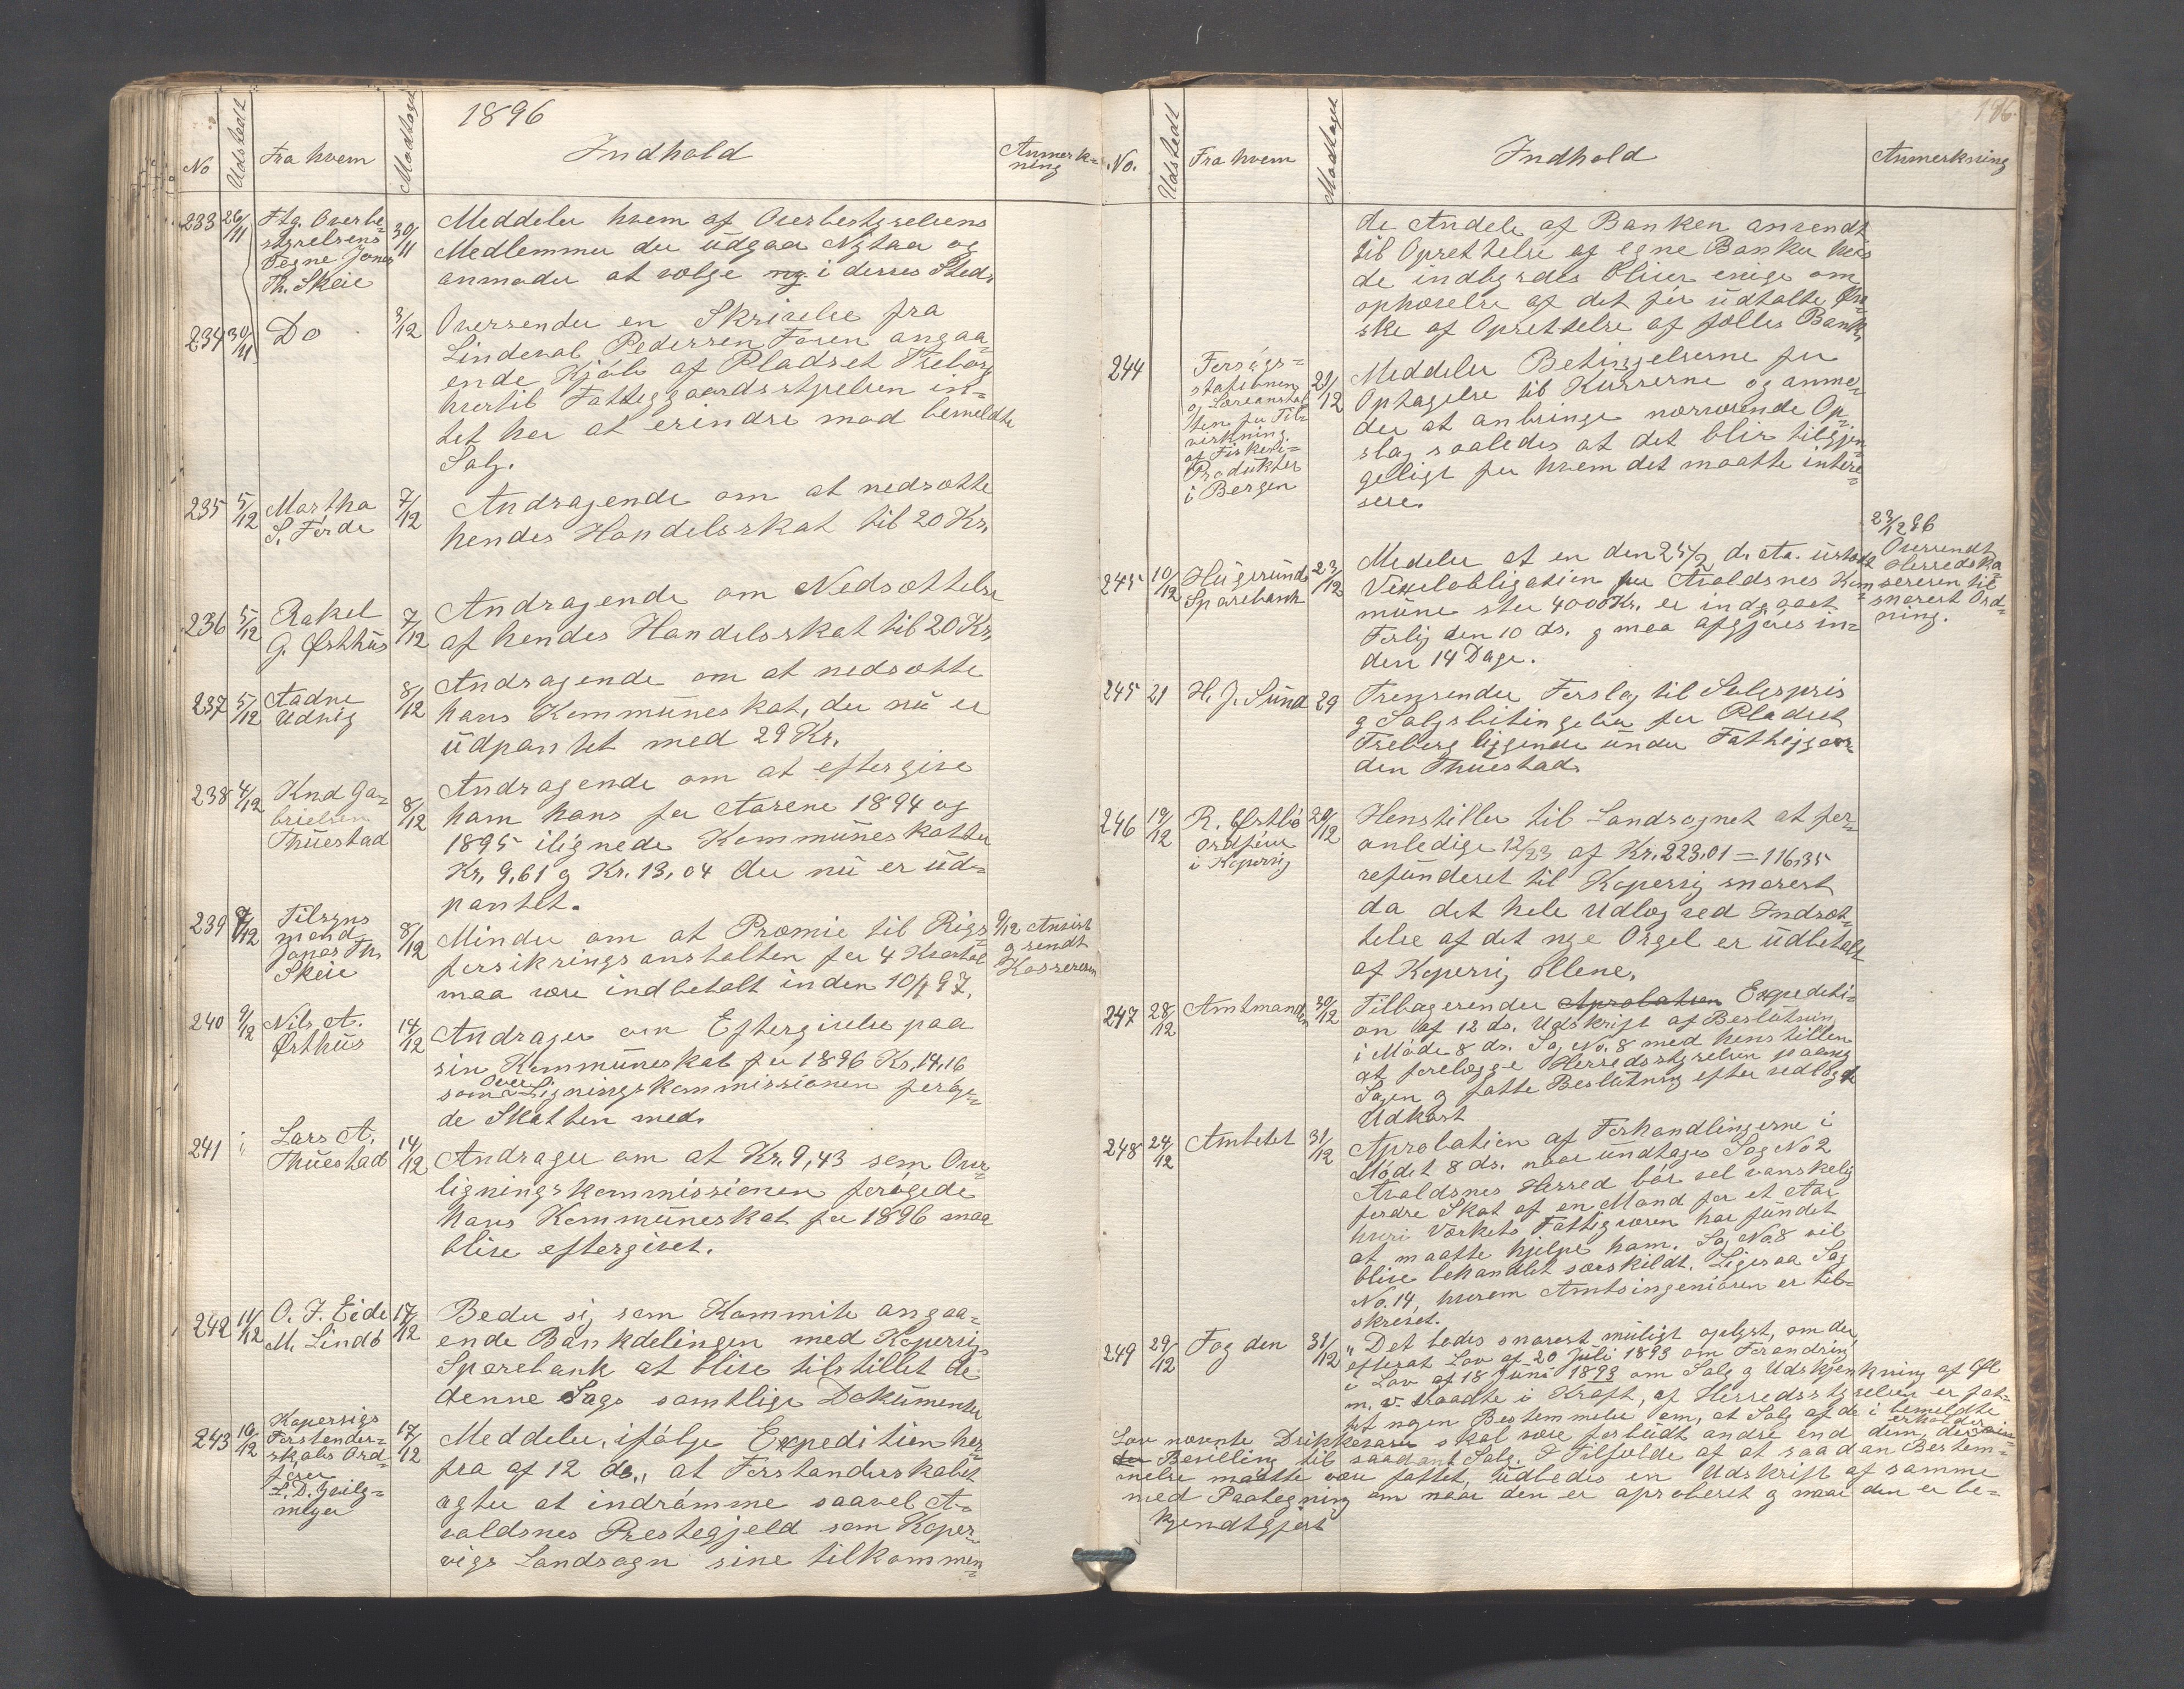 1896
No Udstedt Fra hvem Modtaget Indhold Anmerkning
233 26/11 Ftg. Overbestyrelsens Tegne Jonas Th. Skeie 30/11
Meddeler hvem af Overbestyrelsens
Medlemmer der udgaa Nytaar og
anmoder at vælge ny i deres Sted.
234 30/11 Do 3/12
Oversender en Skrivelse fra
Lindeval Pedersen Foren angaa-
ende Kjøb af Pladset Treborg
hvortil Fattiggaardsstyrelsen in-
tet har at erindre mod bemeldte
Salg.
235 5/12 Martha S. Førde 7/12
Andragende om at nedsætte
hendes Handelsskat til 20 Kr.
236 5/12 Rakel G. Østhus 7/12
Andragende om Nedsættelse
af hendes Handelsskat til 20 Kr.
237 5/12 Aadne Udvig 8/12
Andragende om at nedsætte
hans Kommuneskat, der nu er
udpantet med 29 Kr.
238 4/12 Knud Gabrielsen Thuestad 8/12
Andragende om at eftergive
ham hans for Aarene 1894 og
1895 ilignede Kommuneskatter
Kr. 9,61 og Kr. 13,04 der nu er ud-
pantet.
239 7/12 Tilsynsmand Jonas Th. Skeie 8/12
Minder om at Præmie til Rigs-
forsikringsanstalten for 4 Kvartal
maa være indbetalt inden 10/1 97.
9/12 Anvist
og sendt
Kasseren
240 9/12 Nils A. Østhus 14/12
Andrager om Eftergivelse paa
sin Kommuneskat for 1896 Kr. 14,16
som OverLigningskommissionen forhøie-
de Skatten med.
241 " Lars A. Thuestad 14/12
Andrager om at Kr. 9,43 som Over-
ligningskommissionen forøgede
hans Kommuneskat for 1896 maa
blive eftergivet.
242 14/12 O. J. Eide M. Lindø 17/12
Beder sig som Kommite angaa-
ende Bankdelingen med Kopervigs
Sparebank at blive tilstillet de
denne Sags samtlige Dokumenter
243 16/12 Kopervigs Forstanderskabs Ordfører 17/12
Meddeler, ifølge Expedition her-
fra af 12 ds., at Forstanderskabet
agter at indrømme saavel A-
valdsnes Prestegjeld som Koper-
vigs Landsogn sine tilkommen-
No. Udstedt Fra hvem Modtaget Indhold Anmerkning
de Andele af Banken anvendt
til Oprettelse af egne Banker hvis
de indbyrdes bliver enige om
ophævelse af det før udtalte Øn-
ske af Oprettelse af fælles Bank.
244 Forsøgs-
stationen
og Læreanstal
ten for Til-
virkning
af Fiskeri-
Produkter
i Bergen
21/12
Meddeler Betingelserne for
Optagelse til Kurserne og anmo-
der at anbringe nærværende Op-
slag saaledes at det blir tilgjen-
geligt for hvem det maatte intere-
sere.
245 10/12 Hugesunds Sparebank 23/12
Medeler at en den 25/2 d. Aa. ustedt
Vexelobligation for Avaldsnes Kom-
mune stor 4000 Kr. er indgaaet
Forlig den 10 ds. og maa afgjøres in-
den 14 Dage.
23/12 96
Oversendt
Herredska
sereren til
snarest Ord-
ning.
245 21 H. J. Sund 29
Fremsender Forslag til Salgspris
og Salgsbetingelser for Pladset
Treborg liggende under Fattiggaar
den Thuestad
246 19/12 R. Østbø ordfører i Kopervig 20/12
Henstiller til Landsognet at for-
anledige 12/23 af Kr. 223,01 = 116,35
refunderet til Kopervig snarest
da det hele Udlæg ved Indsæt-
telse af det nye Orgel er udbetalt
af Kopervig allene.
247 28/12 Amtmanden 30/12
Tilbagesender Aprobation Expediti-
on af 12 ds. Udskrift af Beslutning
i Møde 8 ds. Sag No. 8 med henstillen
at forelægge Herredsstyrelsen paany
Sagen og fatte Beslutning efter vedlagte
Udkast
248 24/12 Amtetet 31/12
Aprobation af Forhandlingerne i
Mødet 8 ds. naar undtages Sag No 2
Avaldsnes Herred bør vel vanskelig
fordre Skat af en Mand for et Aar
hvori Værkets Fattigvæsen har fundet
at maatte hjelpe ham. Sag No 8 vil
blive behandlet særskildt. Ligesaa Sag
No. 14, hvorom Amtsingeniøren er til-
skrevet.
249 29/12 Fogden 31/12
"Det bedes snarest muligt oplyst, om der,
efterat Lov af 20 Juli 1893 om Forandring
i Lov af 18 Juni 1893 om Salg og Udskjenkning af Øl
m. v. traadte i Kraft, af Herredsstyrelsen er fat-
tet nogen Bestemmelse om, at Salg af de i bemeldte
Lov nævnte Drikkevarer skal være forbudt andre end dem, der erholder
Bevilling til saadant Salg. I Tilfælde af at saadan Bestem-
melse maatte være fattet, udbedes en Udskrift af samme
med Paategning om naar den er aproberet og naar den er be-
kjendtgjort